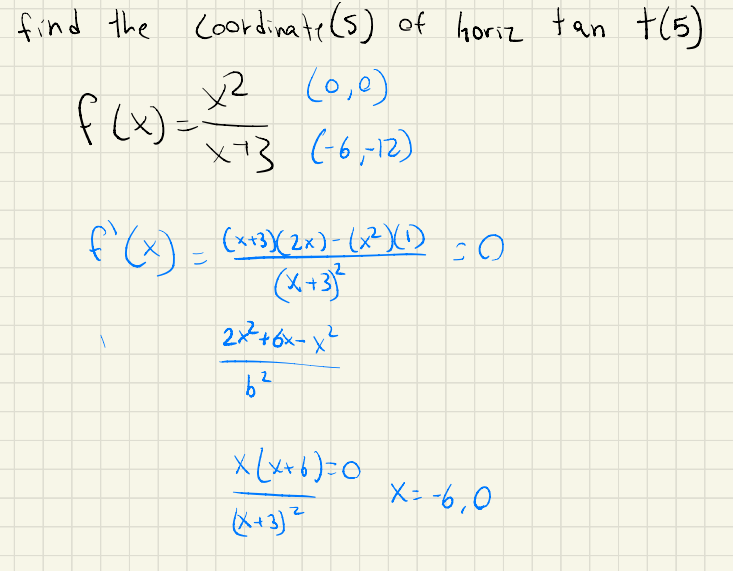 find the coordinate(s) of horiz tan t(s)
f(x) = x²/(x+3) (0,0)
(-6,-12)
f'(x) = ((x+3)(2x) - (x²)(1))/(x+3)² = 0
(2x²+6x-x²)/b²
x(x+6)=0/(x+3)² x = -6,0